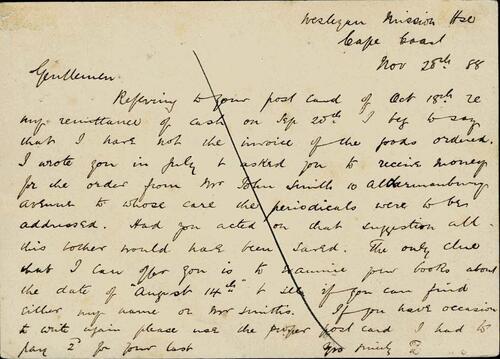 Wesleyan Mission Hse
Cape Coast
Nov 28th 88
Gentlemen
Referring to your post card of Oct 18th re
my remittance of cash on Sep 20th I beg to say
that I have not the invoice of the goods ordered.
I wrote you in July & asked you to receive money
for the order from Mr John Smith 10 Aldermanbury
avenue to whose care the periodicals were to be
addressed. Had you acted on that suggestion all
this bother would have been saved. The only clue
that I can offer you is to examine your books about
the date of "August 14th" to see if you can find
either my name or Mr Smiths. If you have occasion
to write again please use the proper post card I had to
pay 2d for your last Yrs truly